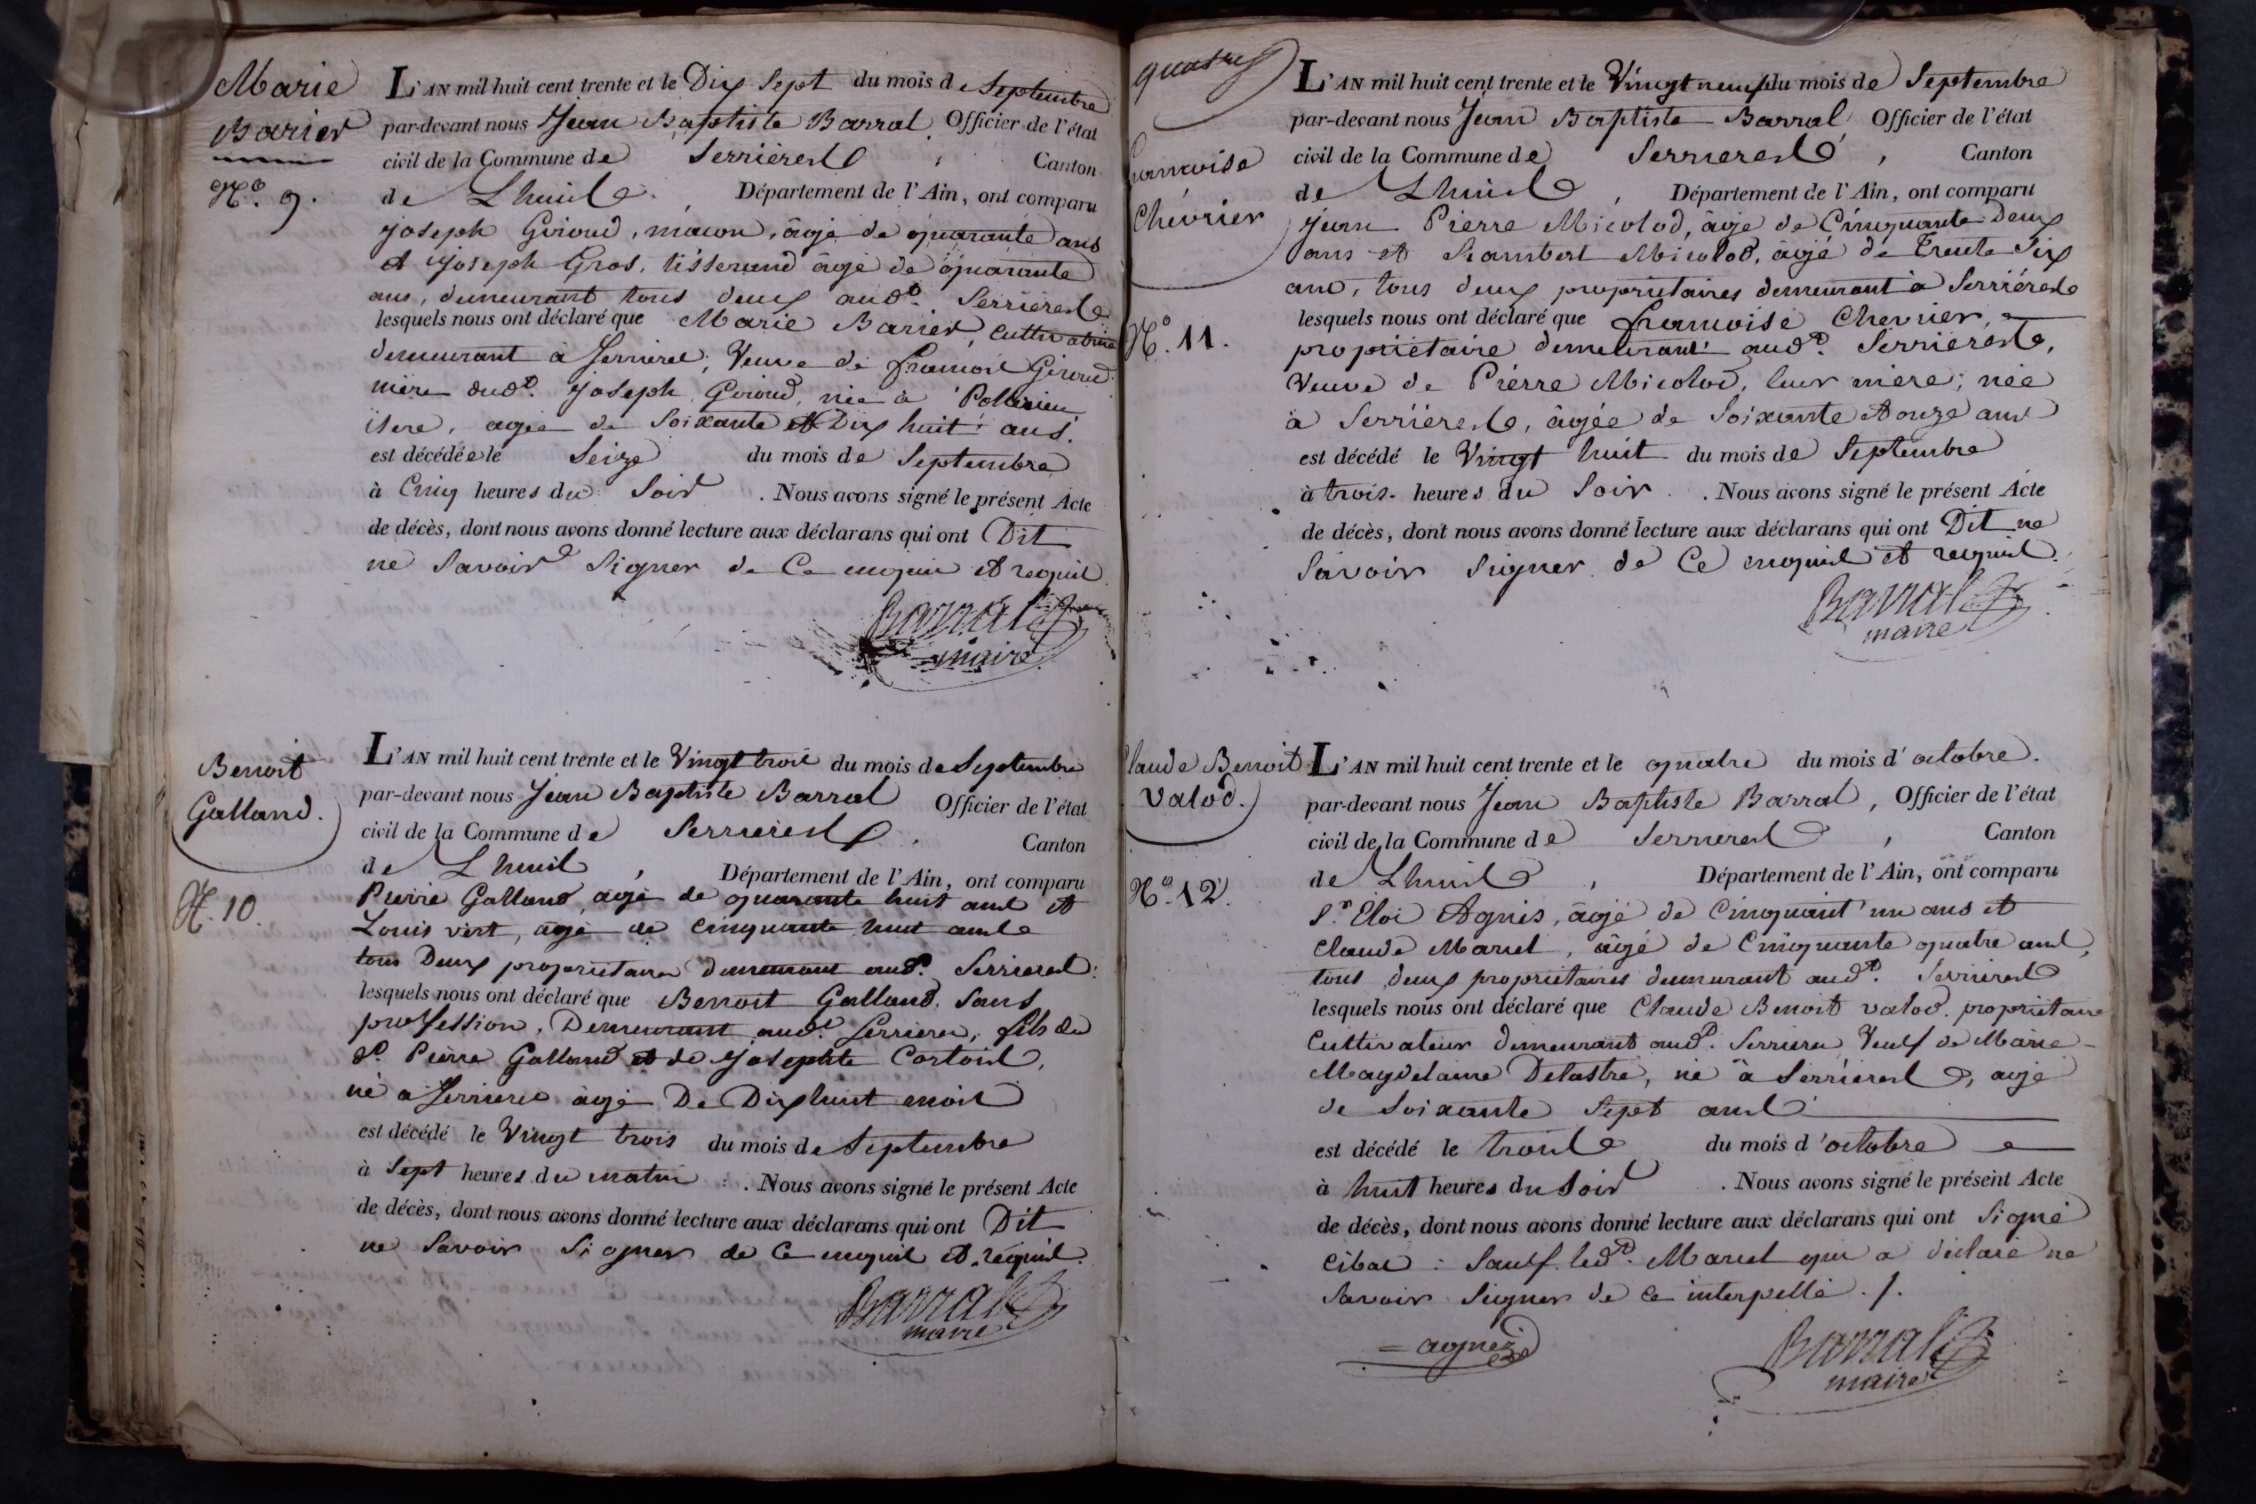 Marie
Barier
N.º 9.
L'AN mil huit cent trente et le Dix Sept du mois de Septembre
par-devant nous Jean Baptiste Barral Officier de l'état
civil de la Commune de Serrieres , Canton
de Lhuis , Département de l'Ain, ont comparu
joseph Giroud, macon, âgé de quarante ans
et joseph Gros, tisserand âgé de quarante
ans, demeurant tous deux audt. Serrieres
lesquels nous ont déclaré que Marie Barier, Cultivatrice
demeurant à Serrieres, Veuve de francois Giroud
mère dudt. joseph Giroud, née à
isere, agée de Soixante et Dix huit ans.
est décédée le Seize du mois de Septembre
à Cinq heures du Soir . Nous avons signé le présent Acte
de décès, dont nous avons donné lecture aux déclarans qui ont Dit
ne Savoir Signer de Ce enquis et requis
Barral
maire
Benoit
Galland.
N. 10.
L'AN mil huit cent trente et le Vingt trois du mois de Septembre
par-devant nous Jean Baptiste Barral Officier de l'état
civil de la Commune de Serrieres , Canton
de Lhuis , Département de l'Ain, ont comparu
Pierre Galland, agé de quarante huit ans et
Louis vert, agé de cinquante huit ans
tous Deux proprietaires demeurant audt. Serrieres.
lesquels nous ont déclaré que Benoit Galland. Sans
profession, Demeurant audt. Serrieres, fils du
dt. Pierre Galland et de Josephte Cortois,
né a Serrieres agé De Dix huit mois
est décédé le Vingt trois du mois de Septembre
à Sept heures du matin . Nous avons signé le présent Acte
de décès, dont nous avons donné lecture aux déclarans qui ont Dit
ne Savoir Signer de Ce enquis et requis.
Barral
maire
quatre
francoise
Chevrier
N.º 11.
L'AN mil huit cent trente et le Vingt neuf du mois de Septembre
par-devant nous Jean Baptiste Barral Officier de l'état
civil de la Commune de Serrieres , Canton
de Lhuis , Département de l'Ain, ont comparu
Jean Pierre Micolod, âgé de Cinquante Deux
ans et Rambert Micolod, âgé de Trente Six
ans, tous deux proprietaires demeurant à Serriéres
lesquels nous ont déclaré que francoise Chevrier,
propriétaire demeurant audt. Serrieres,
Veuve de Pierre Micolod, leur mère; née
à Serrieres, âgée de Soixante et onze ans
est décédé le Vingt huit du mois de Septembre
à trois heures du Soir . Nous avons signé le présent Acte
de décès, dont nous avons donné lecture aux déclarans qui ont Dit ne
Savoir Signer de Ce enquis et requis.
Barral
maire
Claude Benoit
Valod.
N.º 12.
L'AN mil huit cent trente et le quatre du mois d'octobre.
par-devant nous Jean Baptiste Barral, Officier de l'état
civil de la Commune de Serrieres , Canton
de Lhuis , Département de l'Ain, ont comparu
Sr. Eloi Agnis, âgé de Cinquant'un ans et
Claude Marcel, âgé de Cinquante quatre ans,
tous deux proprietaires demeurant audt. Serrieres
lesquels nous ont déclaré que Claude Benoit valod. propriétaire
Cultivateur demeurant audt. Serrieres Veuf de Marie
Magdelaine Delastre, né à Serrieres, agé
de Soixante Sept ans
est décédé le trois du mois d'octobre
à huit heures du Soir . Nous avons signé le présent Acte
de décès, dont nous avons donné lecture aux déclarans qui ont Signé
Cibas : Sauf ledt. Marcel qui a déclaré ne
Savoir Signer de ce interpellé ./.
agnez
Barral
maire